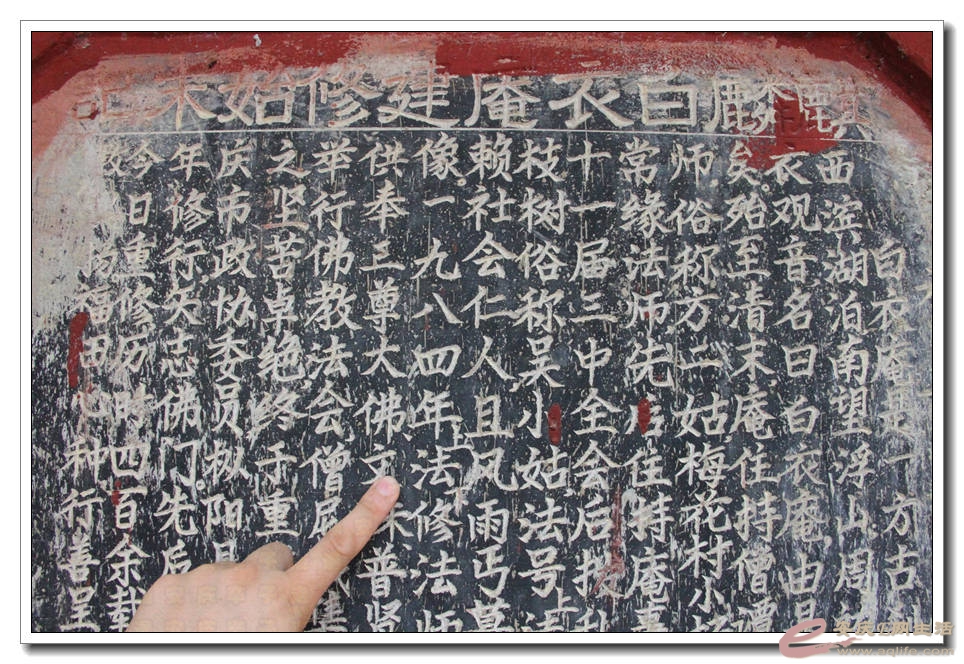 白衣庵建修始末
白衣庵是一方古
西滨湖泊南望浮山周
衣观音名曰白衣庵由是
矣。殆至清末庵住持僧谭
师俗称方二姑梅花村小
常缘法师先后住持庵事
十一届三中全会后
枝树俗称吴小姑法号法
赖社会仁人且风雨丐募
像。一九八四年法修法师
供奉三尊大佛文殊普贤
举行佛教法会僧
之坚苦卓绝终于重
庆市政协委员枞阳县
年修行矢志佛门。先后
今日重修历时四百余载
福田 利行善呈
www.aqlife.com